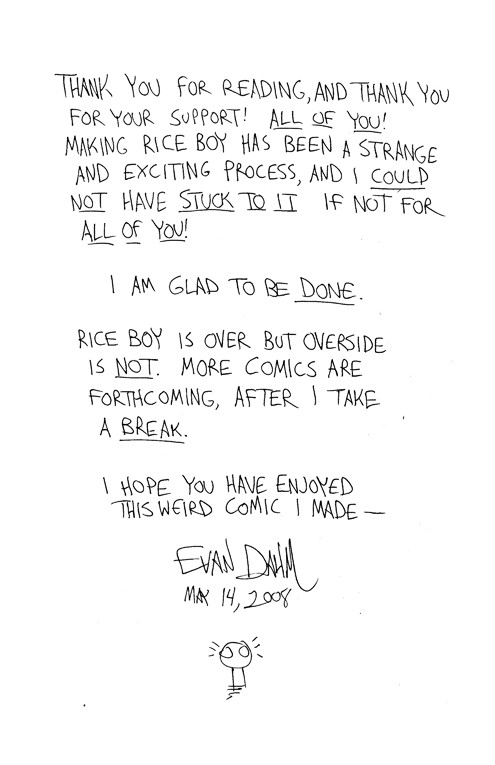 THANK YOU FOR READING, AND THANK YOU
FOR YOUR SUPPORT! ALL OF YOU!
MAKING RICE BOY HAS BEEN A STRANGE
AND EXCITING PROCESS, AND I COULD
NOT HAVE STUCK TO IT IF NOT FOR
ALL OF YOU!
I AM GLAD TO BE DONE.
RICE BOY IS OVER BUT OVERSIDE
IS NOT. MORE COMICS ARE
FORTHCOMING, AFTER I TAKE
A BREAK.
I HOPE YOU HAVE ENJOYED
THIS WEIRD COMIC I MADE —
EVAN DAHM
MAY 14, 2008